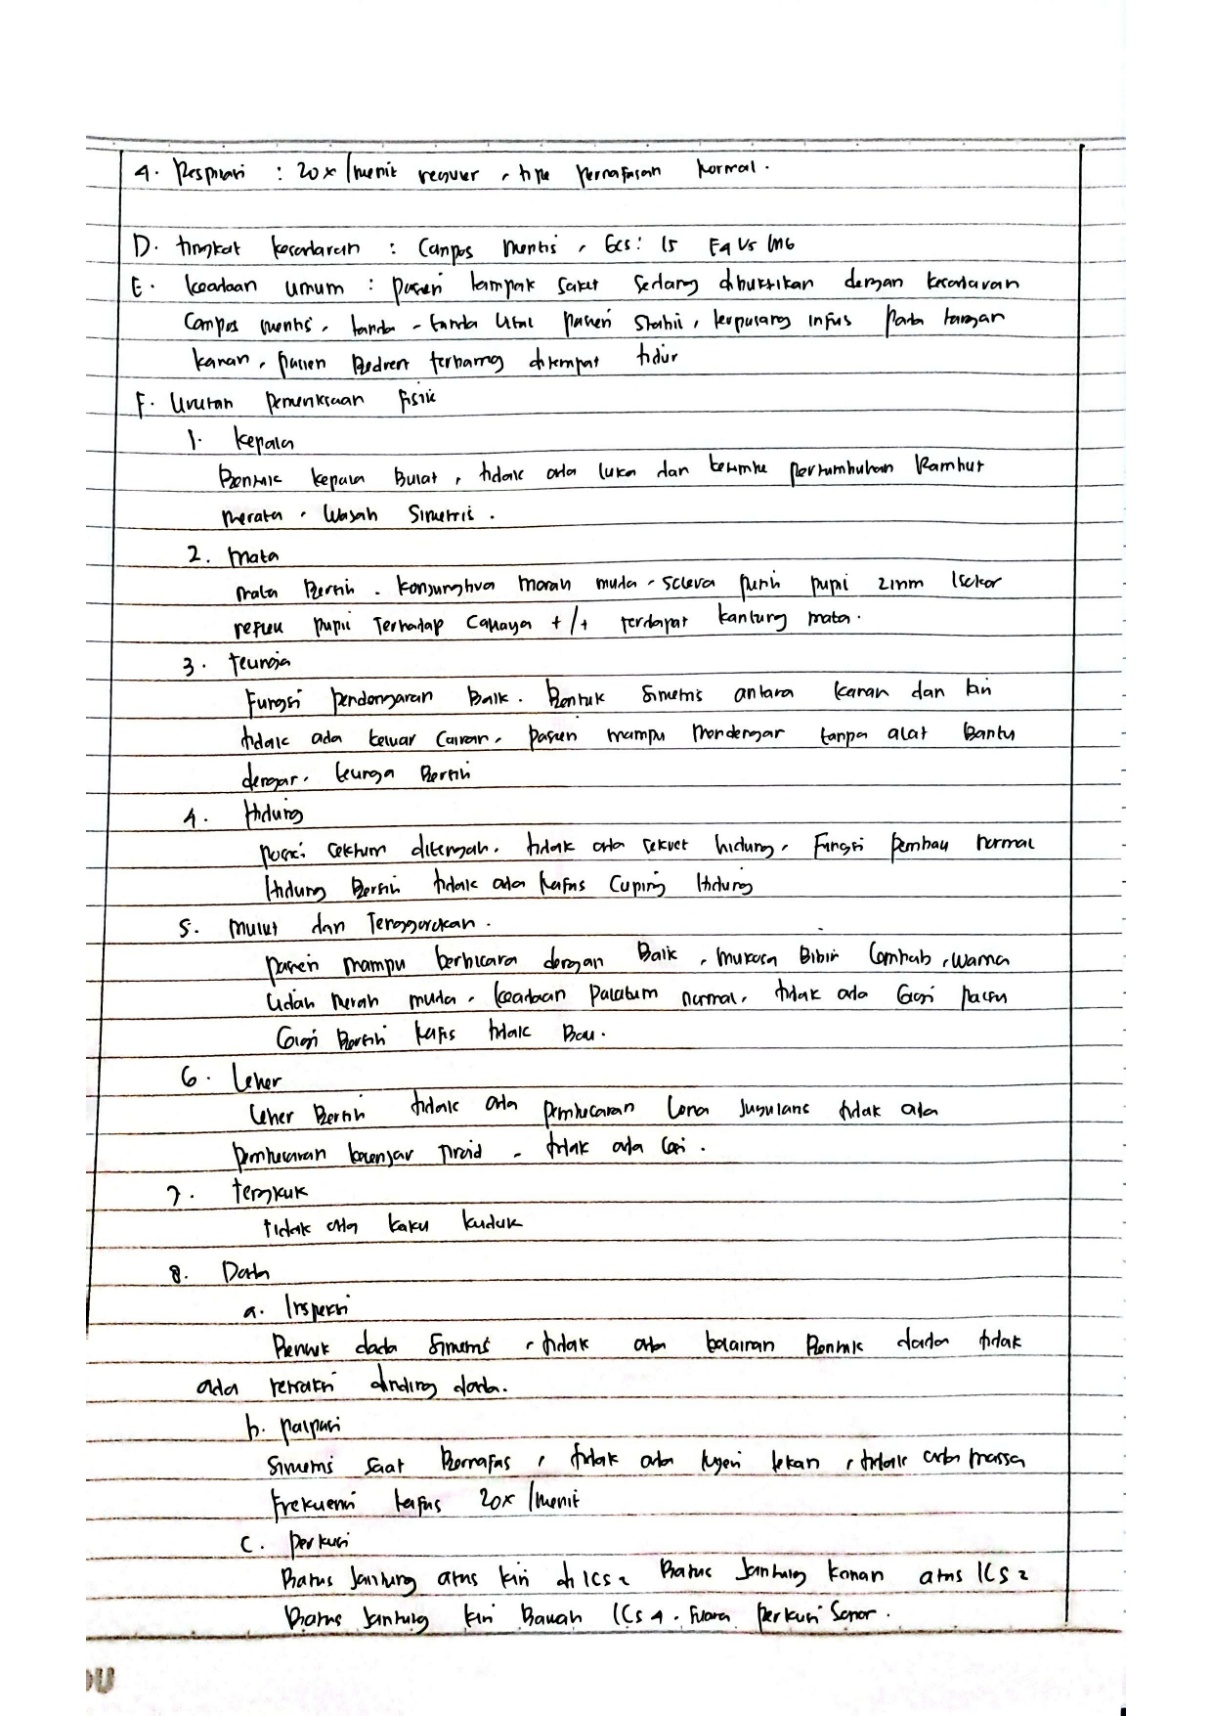 4. Respirasi : 20x /menit reguler , tipe pernafasan normal.
D. tingkat kesadaran : Compos mentis , Gcs : 15 E4 V5 M6
E. keadaan umum : pasien tampak sakit sedang dibuktikan dengan kesadaran
Compos mentis, tanda-tanda vital pasien stabil, terpasang infus pada tangan
kanan, pasien Bedrest terbaring ditempat tidur
F. Urutan pemeriksaan fisik
1. kepala
Bentuk kepala Bulat , tidak ada luka dan pertumbuhan Rambut
merata . Wajah Simetris .
2. mata
mata Bersih . konjungtiva merah muda . sclera putih pupil 2mm Isokor
reflek pupil Terhadap Cahaya +/+ terdapat kantung mata.
3. telinga
Fungsi pendengaran Baik . Bentuk simetris antara kanan dan kiri
tidak ada keluar Cairan. pasien mampu mendengar tanpa alat Bantu
dengar. telinga Bersih
4. Hidung
posisi ditengah. tidak ada sekret hidung. Fungsi pembau normal
Hidung Bersih tidak ada Nafas Cuping Hidung
5. Mulut dan Tenggorokan .
pasien mampu berbicara dengan Baik , mukosa Bibir Lembab , warna
Lidah merah muda , keadaan Palatum normal, tidak ada Gigi palsu
Gigi Bersih Nafas tidak Bau.
6. Leher
Leher Bersih tidak ada pembesaran Vena Jugularis tidak ada
pembesaran kelenjar Tiroid - tidak ada .
7. tengkuk
tidak ada kaku kuduk
8. Dada
a. Inspeksi
Bentuk dada simetris , tidak ada kelainan Bentuk dada tidak
ada retraksi dinding dada.
b. palpasi
Simetris saat Bernafas , tidak ada nyeri tekan , tidak ada massa
Frekuensi nafas 20x /menit
c. perkusi
Batas Jantung atas kiri di ICS 2 Batas Jantung kanan atas ICS 2
Batas Jantung kiri Bawah ICS 4 . Suara perkusi Sonor .